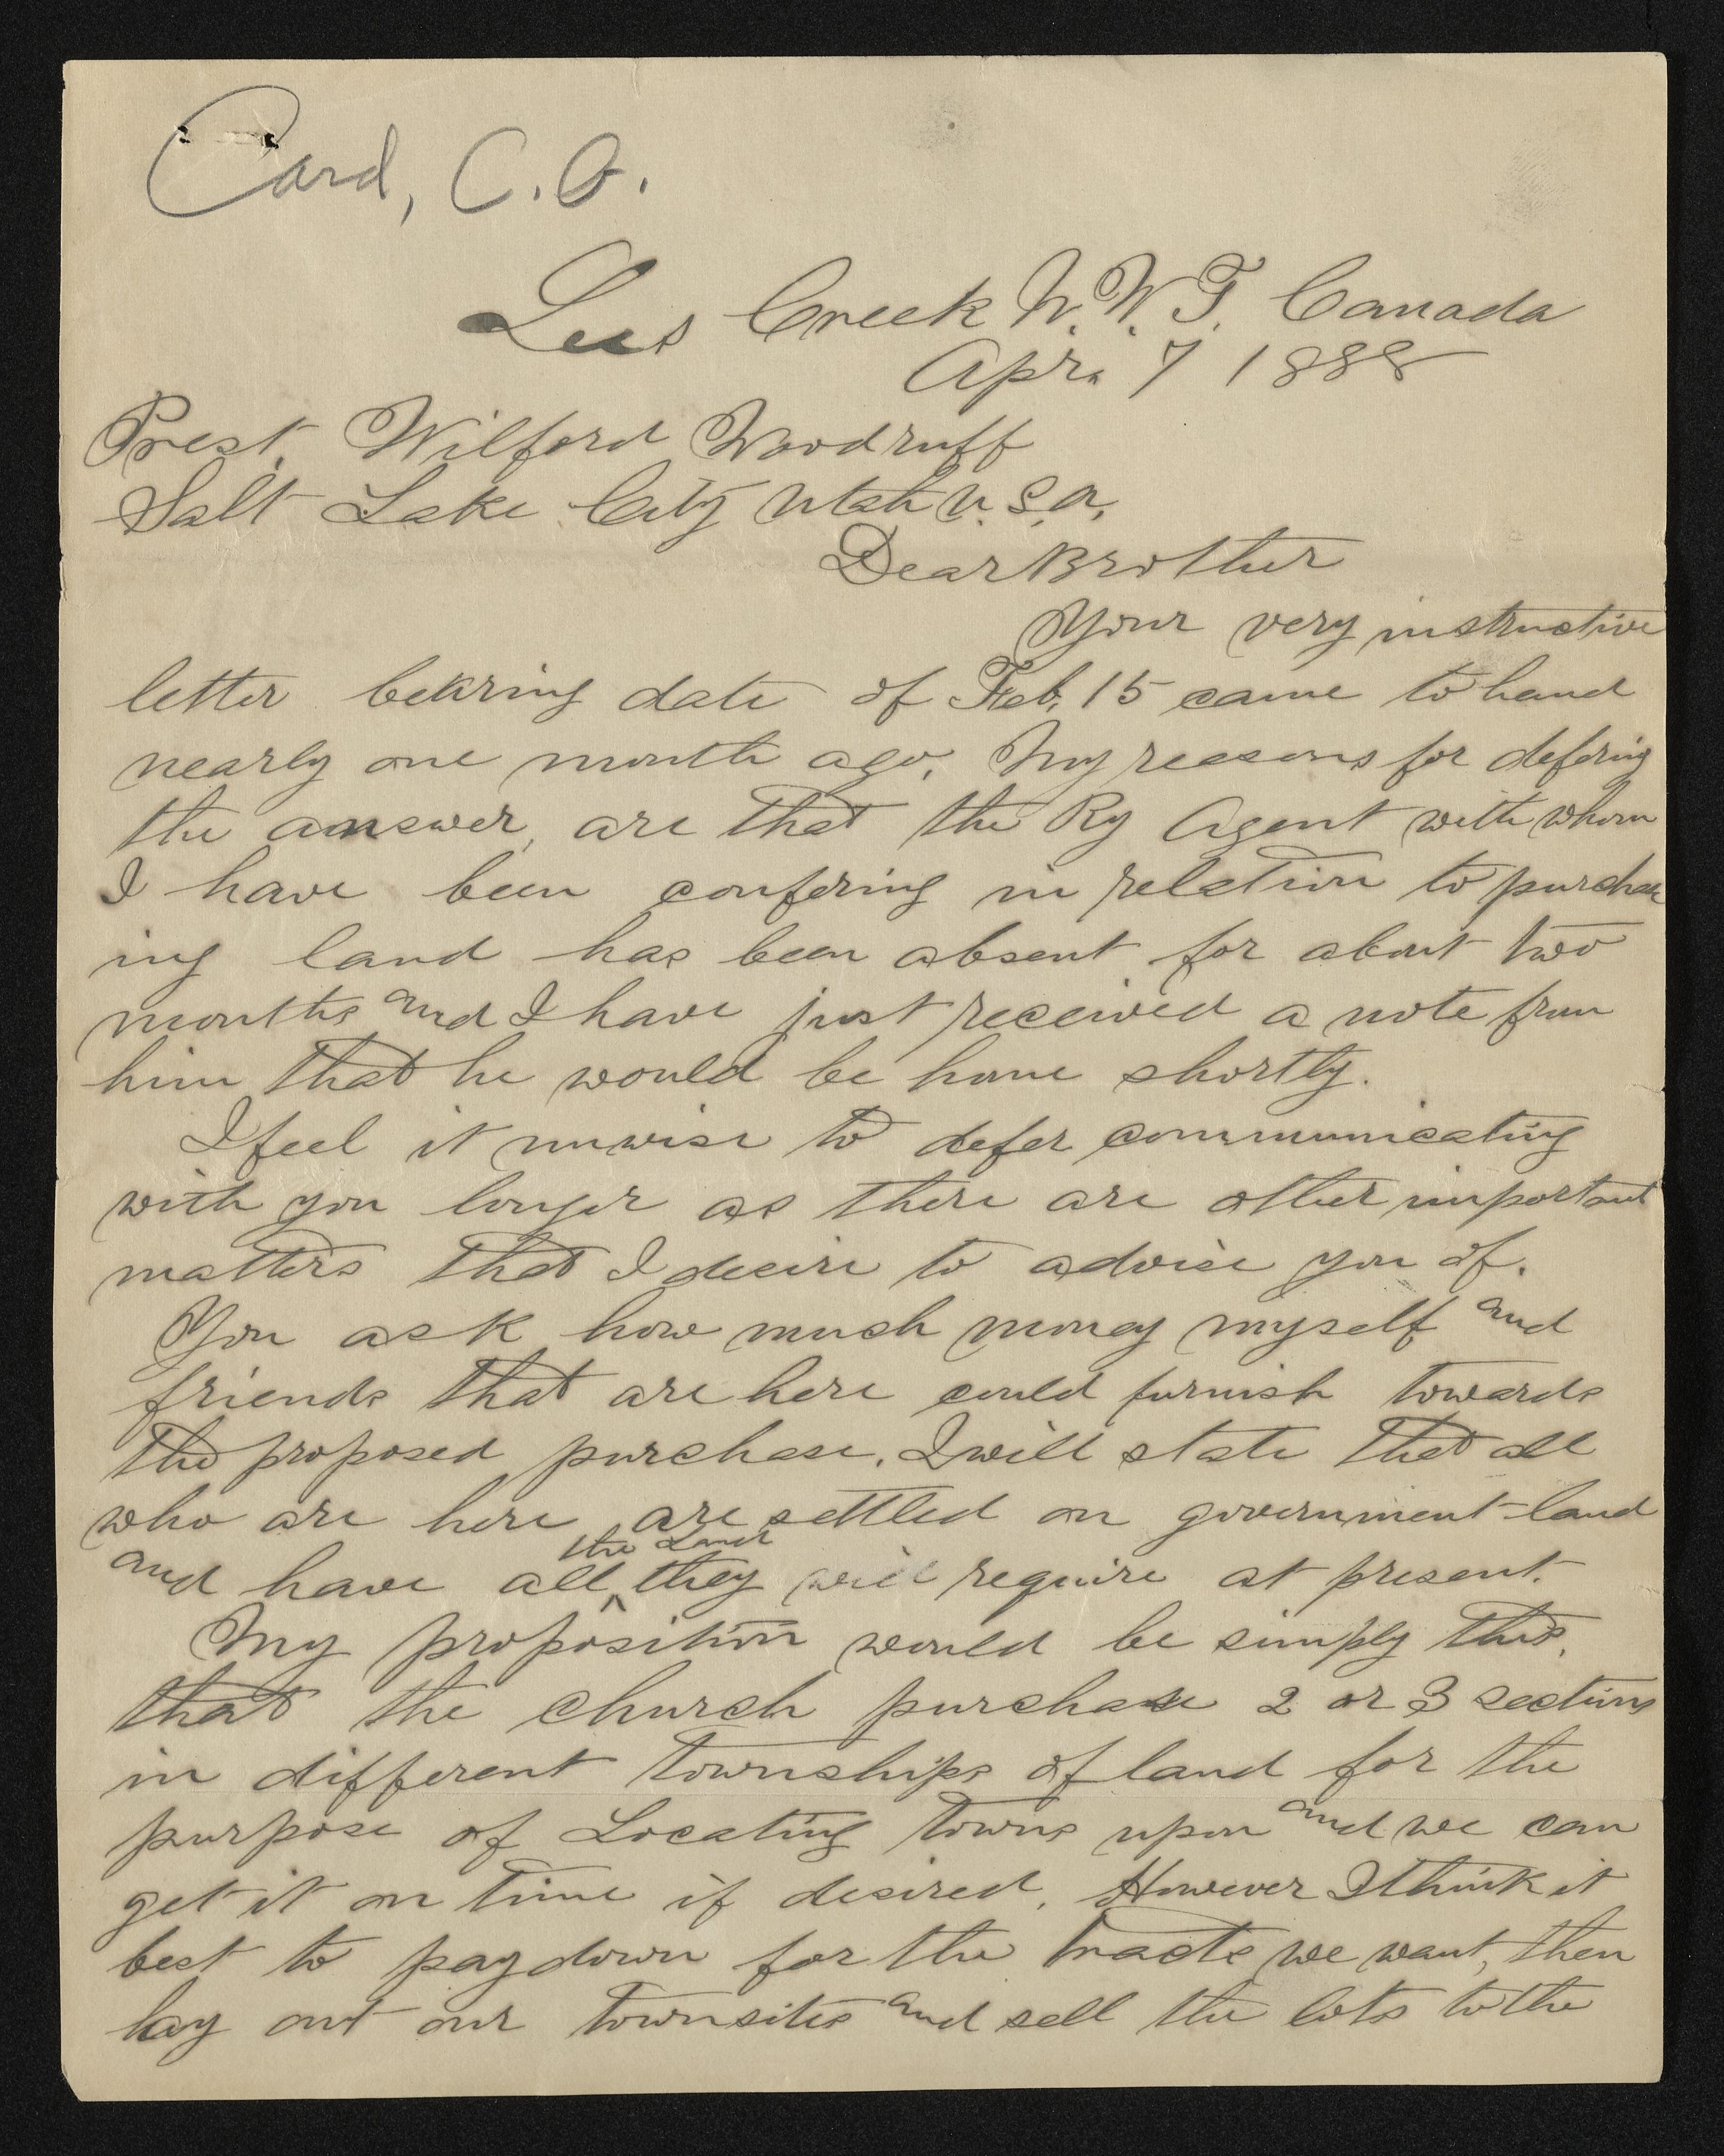 Card, C. O.
Lees Creek N. W. T. Canada
Apr. 7 1888
Prest. Wilford Woodruff
Salt Lake City Utah U. S. A.
Dear Brother
Your very instructive
letter bearing date of Feb. 15 came to hand
nearly one month ago. My reasons for defering
the answer, are that the Ry Agent with whom
I have been confering in relation to purchas
ing land has been absent for about two
months and I have just received a note from
him that he would be home shortly.
I feel it unwise to defer communicating
with you longer as there are other important
matters that I desire to advise you of.
You ask how much money myself and
friends that are here could furnish towards
the proposed purchase. I will state that all
who are here are settled on government land
the Land
and have all ^ they will require at present.
My proposition would be simply this,
that the church purchase 2 or 3 sections
in different townships of land for the
purpose of Locating towns upon and we can
get it on time if desired. However I think it
best to pay down for the tracts we want, then
lay out our townsites and sell the lots to the